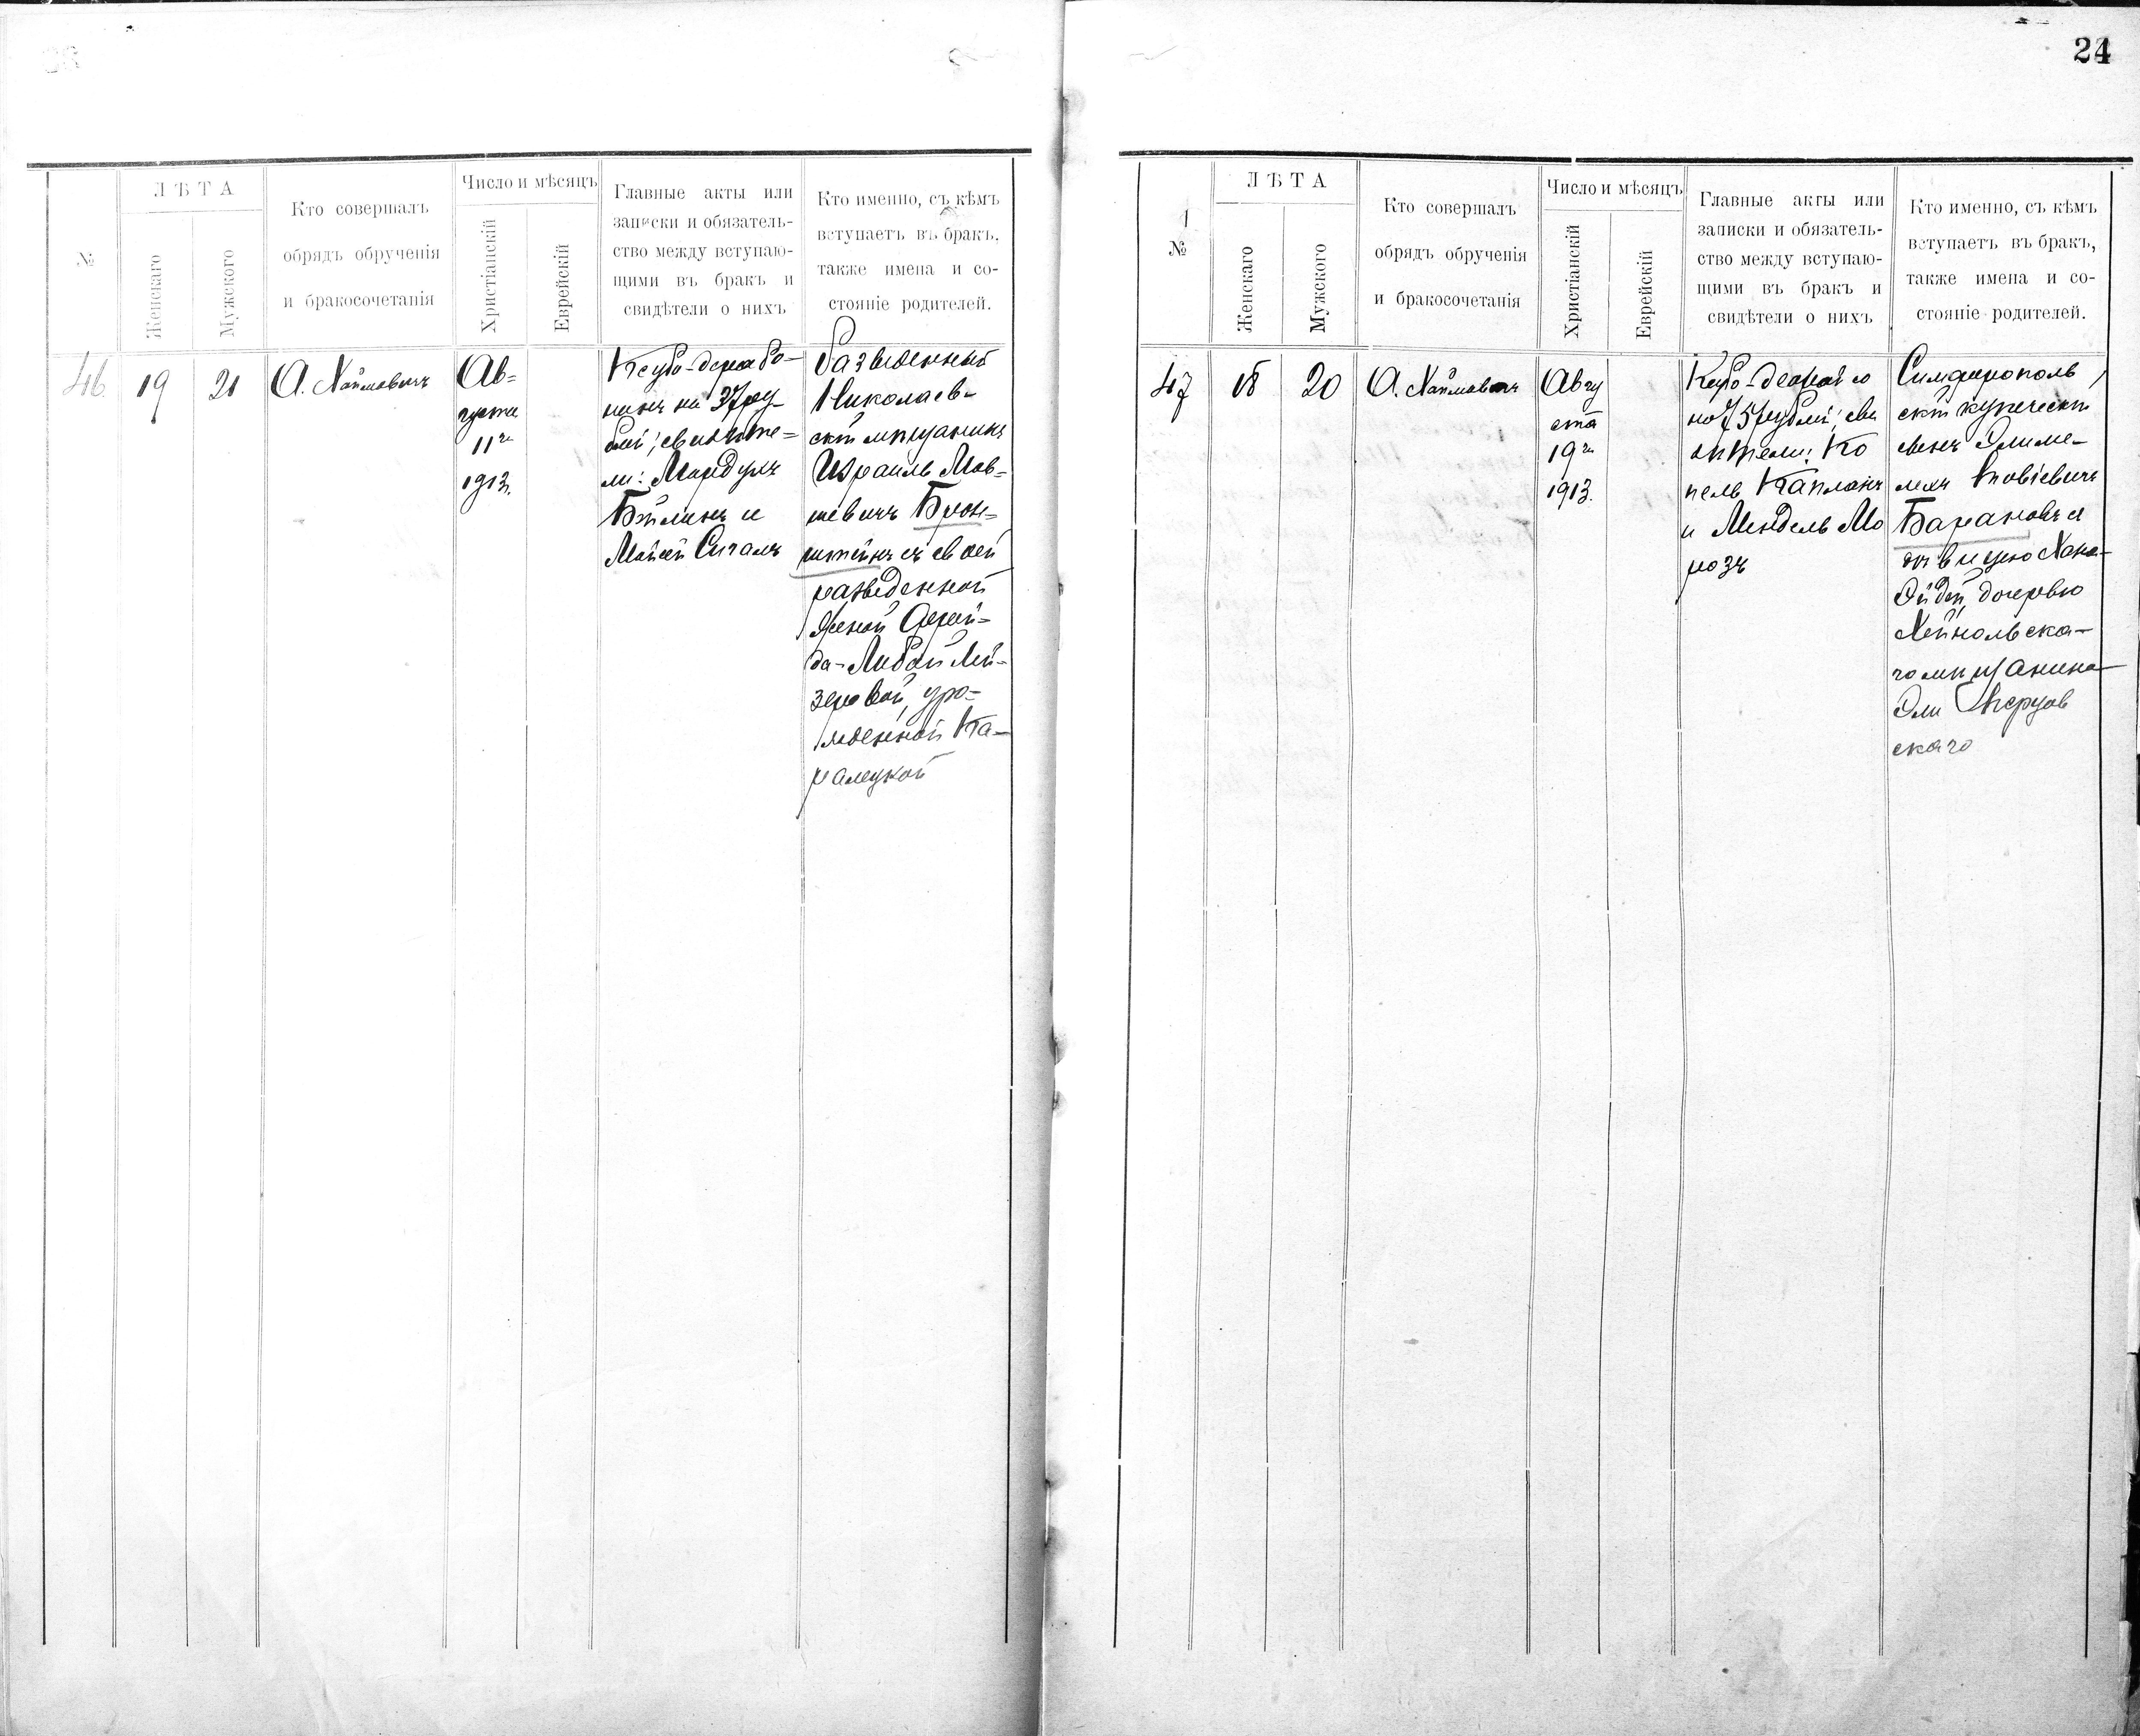 24
№
ЛѢТА
Женскаго
Мужского
Кто совершалъ
обрядъ обрученія
и бракосочетанія
Число и мѣсяцъ
Христіанскій
Еврейскій
Главные акты или
записки и обязатель-
ство между вступаю-
щими въ бракъ и
свидѣтели о нихъ
Кто именно, съ кѣмъ
вступаетъ въ бракъ,
также имена и со-
стояніе родителей.
46
19
21
А. Хаймовичъ
Ав=
густа
11го
1913.
на 37 ру=
блей; свидѣте=
ли: Мордухъ
Бейлинъ и
Мойсей Сигалъ
Разведенный
Николаев-
скій мѣщанинъ
Израиль Мов-
шевичъ Брон=
штейнъ съ своей
разведенной
женой Фрей=
да-Либой Лей-
зеровой, уро=
жденной Ка-
ралецкой
№
ЛѢТА
Женскаго
Мужского
Кто совершалъ
обрядъ обрученія
и бракосочетанія
Число и мѣсяцъ
Христіанскій
Еврейскій
Главные акты или
записки и обязатель-
ство между вступаю-
щими въ бракъ и
свидѣтели о нихъ
Кто именно, съ кѣмъ
вступаетъ въ бракъ,
также имена и со-
стояніе родителей.
47
18
20
А. Хаймовичъ
Авгу
ста
19го
1913.
на 75 рублей; сви
дѣтели: Ко
пель Капланъ
и Мендель Мо
розъ
Симферополь
скій купеческій
сынъ Элиме-
лех
Барановъ съ
дѣвицею Хана-
Эйдей, дочерью
скa-
го мѣщанина
Эли
скаго